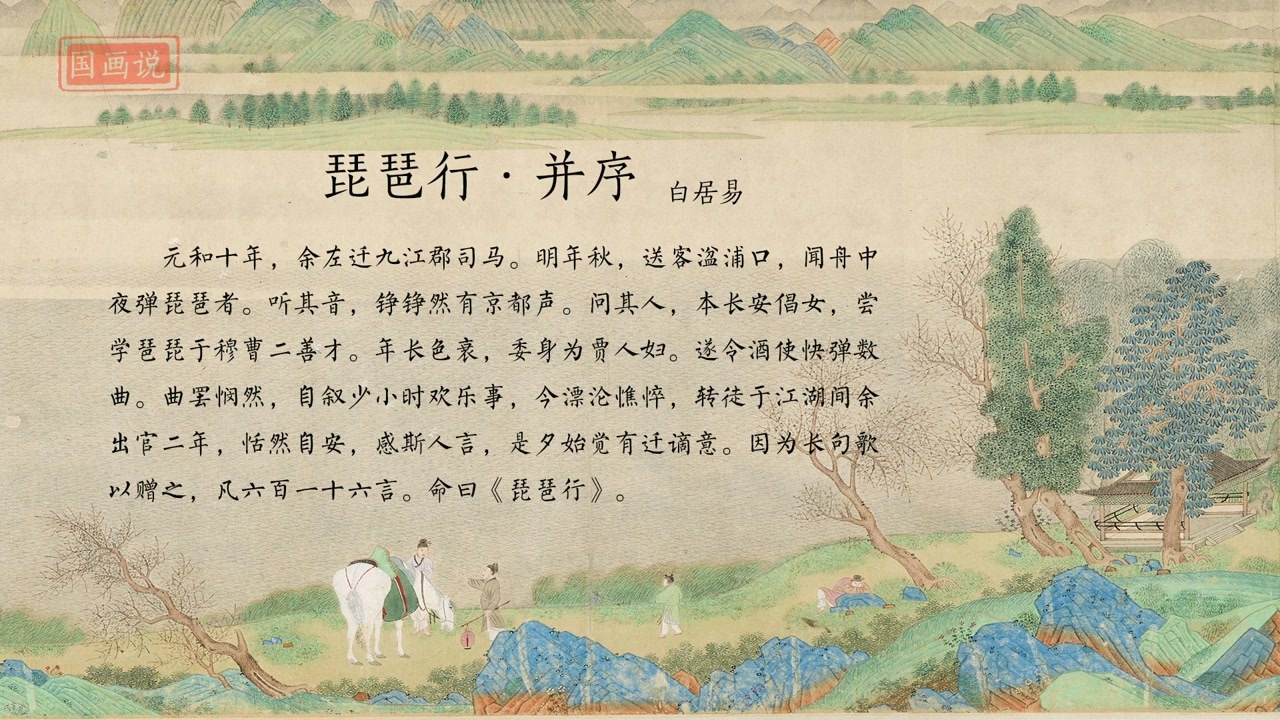 国画说
琵琶行·并序 白居易
元和十年，余左迁九江郡司马。明年秋，送客湓浦口，闻舟中
夜弹琵琶者。听其音，铮铮然有京都声。问其人，本长安倡女，尝
学琶琵于穆曹二善才。年长色衰，委身为贾人妇。遂令酒使快弹数
曲。曲罢悯然，自叙少小时欢乐事，今漂沦憔悴，转徒于江湖间余
出官二年，恬然自安，感斯人言，是夕始觉有迁谪意。因为长句歌
以赠之，凡六百一十六言。命曰《琵琶行》。